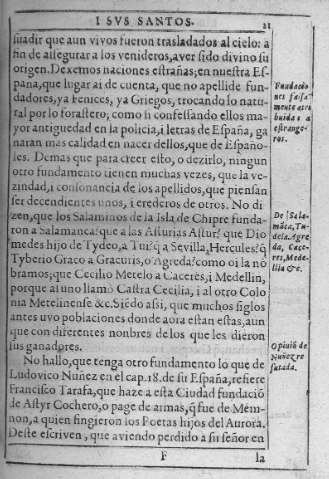 I SVS SANTOS. 21
suadir que aun vivos fueron trasladados al cielo: a
fin de assegurar a los venideros, aver sido divino su
origen. Dexemos naciones estrañas; en nuestra Es-
pana, que lugar ai de cuenta, que no apellide fun-
dadores, ya Fenices, ya Griegos, trocando lo natu-
ral por lo forastero; como si confessando ellos ma-
yor antiguedad en la policia, i letras de España, ga
naran mas calidad en nacer dellos, que de Españo-
les. Demas que para creer esto, o dezirlo, ningun
otro fundamento tienen muchas vezes, que la ve-
zindad, i consonancia de los apellidos, que piensan
ser decendientes unos, i erederos de otros. No di-
zen, que los Salaminos de la Isla de Chipre funda-
ron a Salamanca? que a las Asturias Astur? que Dio
medes hijo de Tydeo, a Tui? q̃ a Sevilla, Hercules? q̃
Tyberio Graco a Gracuris, o Agreda? como oi la nõ
bramos; que Cecilio Metelo a Caceres, i Medellin,
porque al uno llamò Castra Cecilia, i al otro Colo
nia Metelinense &c. Siẽdo assi, que muchos siglos
antes uvo poblaciones donde aora estan estas, aun
que con diferentes nonbres de los que les dieron
sus ganadores.
No hallo, que tenga otro fundamento lo que de
Ludovico Nuñez en el cap. 18. de su España, refiere
Francisco Tarafa, que haze a esta Ciudad fundaciõ
de Astyr Cochero, o page de armas, q̃ fue de Mem-
non, a quien fingieron los Poetas hijos del Aurora.
Deste escriven, que aviendo perdido a su señor en
F la
Fundacio
nes falsa
mente atri
buidas a
estrange-
ros.
De Sala-
māca, Tu-
dela, Agre
da, Cace-
res, Mede-
llin &c.
Opiniõ de
Nuñez re
futada.